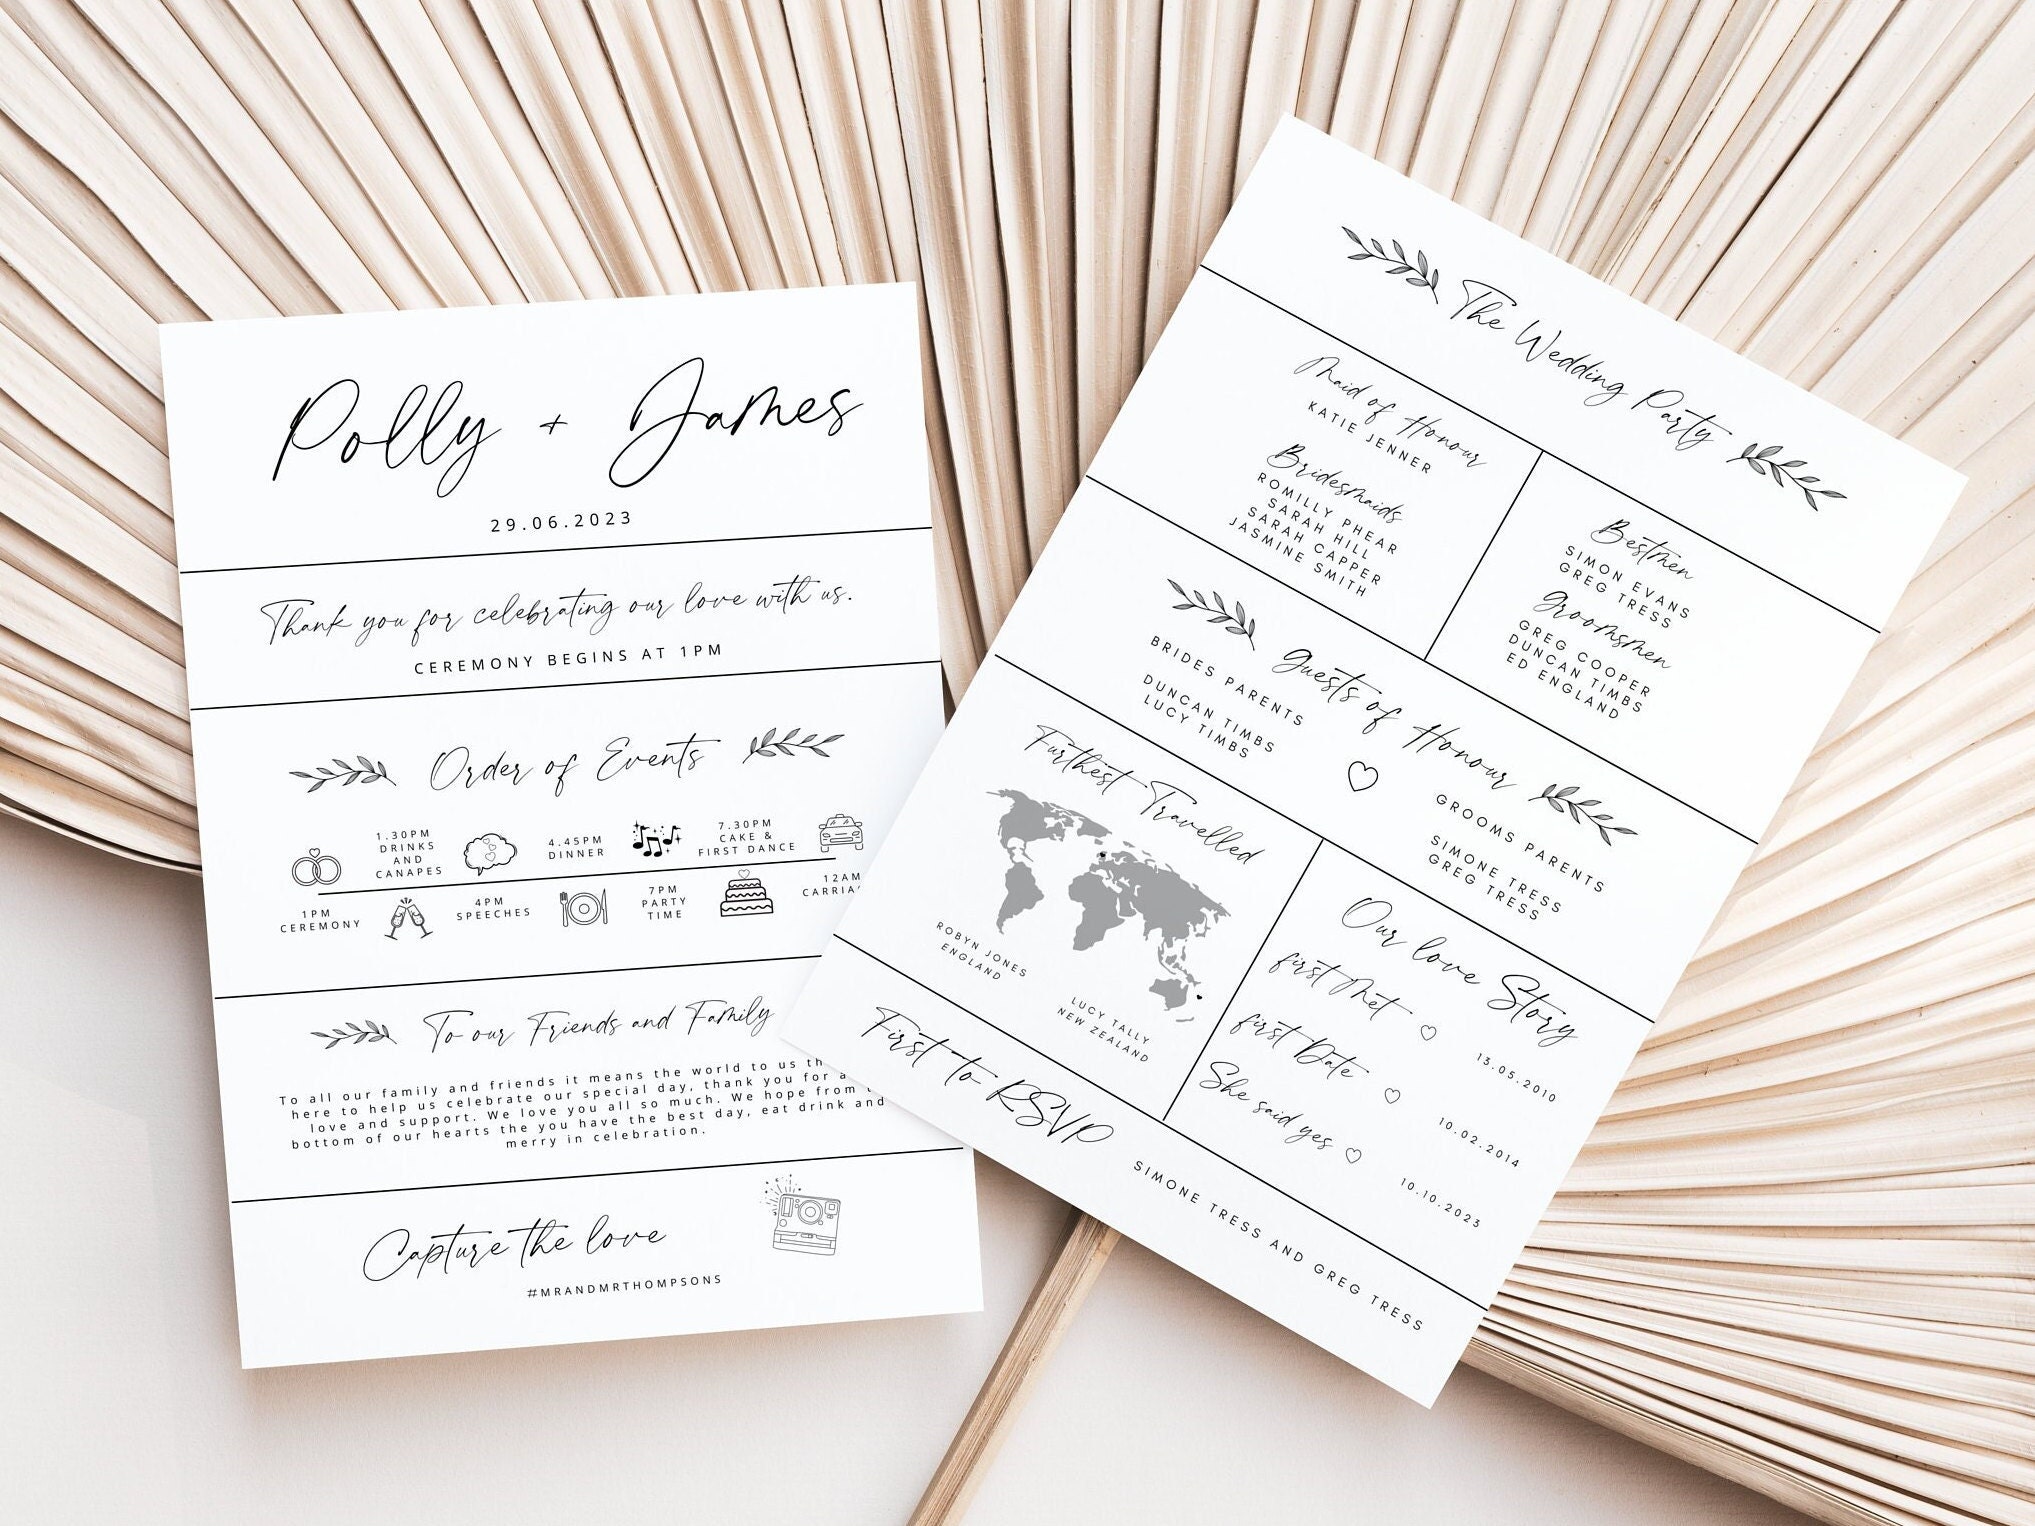 Polly + James
29.06.2023
Thank you for celebrating our love with us.
CEREMONY BEGINS AT 1PM
Order of Events
1.30PM
DRINKS
AND
CANAPES
4.45PM
DINNER
7.30PM
CAKE &
FIRST DANCE
1PM
CEREMONY
4PM
SPEECHES
7PM
PARTY
TIME
12AM
To our Friends and Family
To all our family and friends it means the world to us
here to help us celebrate our special day, thank you for
love and support. We love you all so much. We hope from
bottom of our hearts the you have the best day, eat drink and
merry in celebration.
Capture the love
#MRANDMRTHOMPSONS
The Wedding Party
Maid of Honour
KATIE JENNER
Bridesmaids
ROMILLY PHEAR
SARAH HILL
SARAH CAPPER
JASMINE SMITH
Bestmen
SIMON EVANS
GREG TRESS
Groomsmen
GREG COOPER
DUNCAN TIMBS
ED ENGLAND
Guests of Honour
BRIDES PARENTS
DUNCAN TIMBS
LUCY TIMBS
GROOMS PARENTS
SIMONE TRESS
GREG TRESS
Furthest Travelled
ROBYN JONES
ENGLAND
LUCY TALLY
NEW ZEALAND
Our love Story
first Met
13.05.2010
first Date
10.02.2014
She said yes
10.10.2023
First to RSVP
SIMONE TRESS AND GREG TRESS